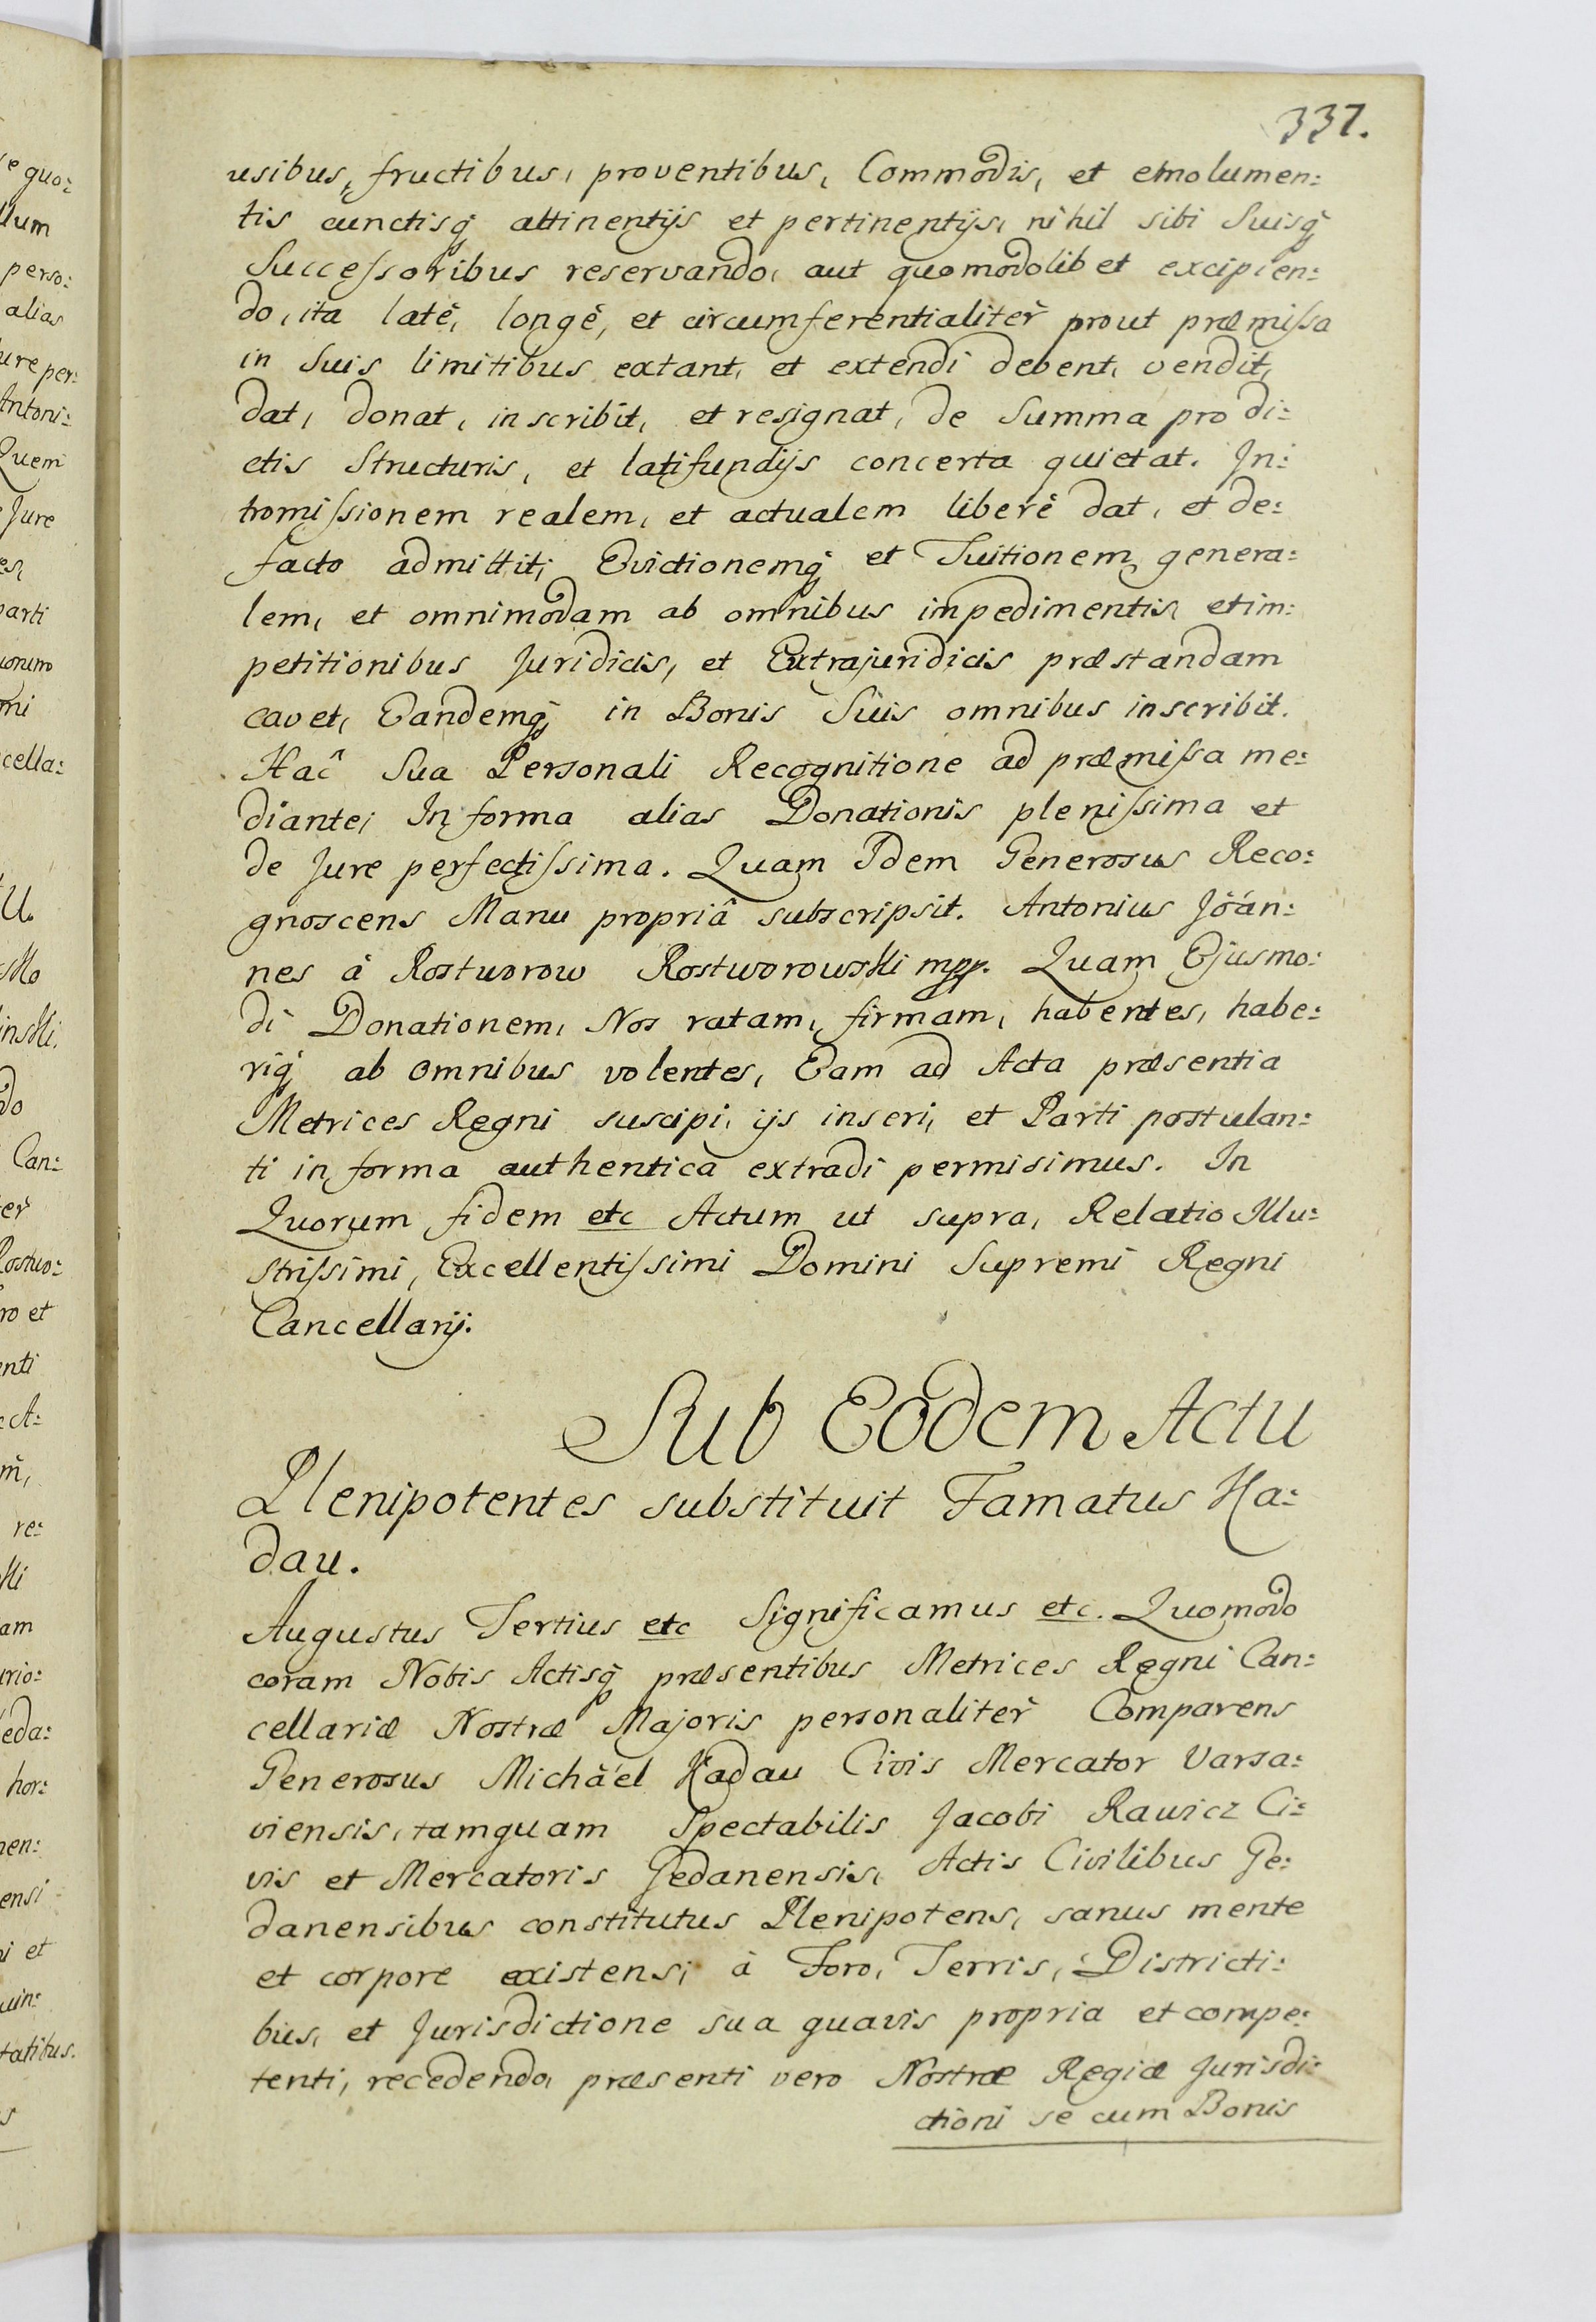 337.
usibus, fructibus, proventibus, Commodis, et emolumen:
tis cunctisq́ attinentijs et pertinentijs, nihil sibi Suisq́
Succeſsoribus reservando, aut quomodolibet excipien:
do, ita latè, longè, et circumferentialitèr prout præmiſsa
in Suis limitibus extant, et extendi debent, vendit,
dat, donat, inscribit, et resignat, de Summa pro di:
ctis Structuris, et latifundijs concerta quietat. In:
tromiſsionem realem, et actualem liberè dat, et de:
facto admittit; Evictionemq́ et Tuitionem genera:
lem, et omnimodam ab omnibus impedimentis, et im:
petitionibus Juridicis, et Extrajuridicis præstandam
cavet, Eandemq́ in Bonis Suis omnibus inscribit.
Hac̑ Sua Personali Recognitione ad præmiſsa me:
diante, In forma alias Donationis pleniſsima et
de Jure perfectiſsima. Quam Idem Generosus Reco:
gnoscens Manu propriâ subscripsit. Antonius Joan:
nes à Rostworow Rostworowski mpp. Quam Ejusmo:
di Donationem, Nos ratam, firmam, habentes, habe:
riq́ ab omnibus volentes, Eam ad Acta præsentia
Metrices Regni suscipi, ijs inseri, et Parti postulan:
ti in forma authentica extradi permisimus. In
Quorum fidem etc Actum ut supra, Relatio Illu:
striſsimi, Excellentiſsimi Domini Supremi Regni
Cancellarij.
Sub Eodem Actu
Plenipotentes substituit Famatus Ha:
dau.
Augustus Tertius etc Significamus etc. Quomodo
coram Nobis Actisq́ præsentibus Metrices Regni Can:
cellariæ Nostræ Majoris personalitèr Comparens
Generosus Michäel Hadau Civis Mercator Varsa:
viensis, tamquam Spectabilis Jacobi Rawicz Ci:
vis et Mercatoris Gedanensis, Actis Civilibus Ge:
danensibus constitutus Plenipotens, sanus mente
et corpore existens, à Foro, Terris, Districti:
bus, et Jurisdictione sua quavis propria et compe:
tenti, recedendo, præsenti vero Nostræ Regiæ Jurisdi:
ctioni se cum Bonis